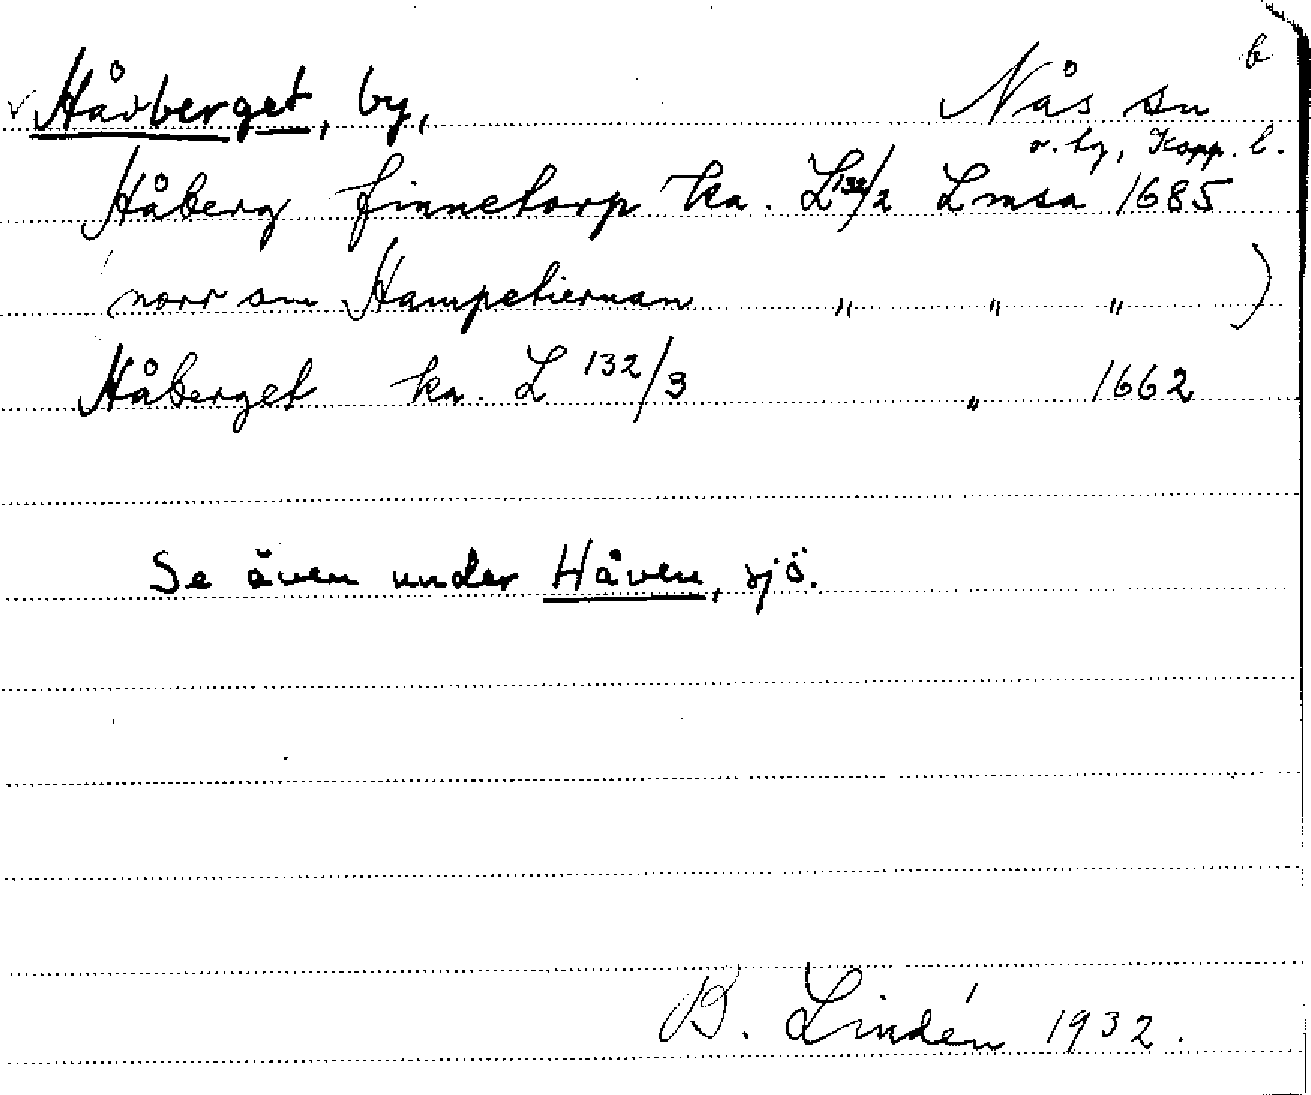 v Håvberget, by, Nås sn b
v. by, Kopp. l.
Håberg finnetorp ka. L 132/2 Lmsa 1685
(norr om Hampetiernan " " " )
Håberget ka. L 132/3 " 1662
Se även under Håven, sjö.
B. Lindén 1932.